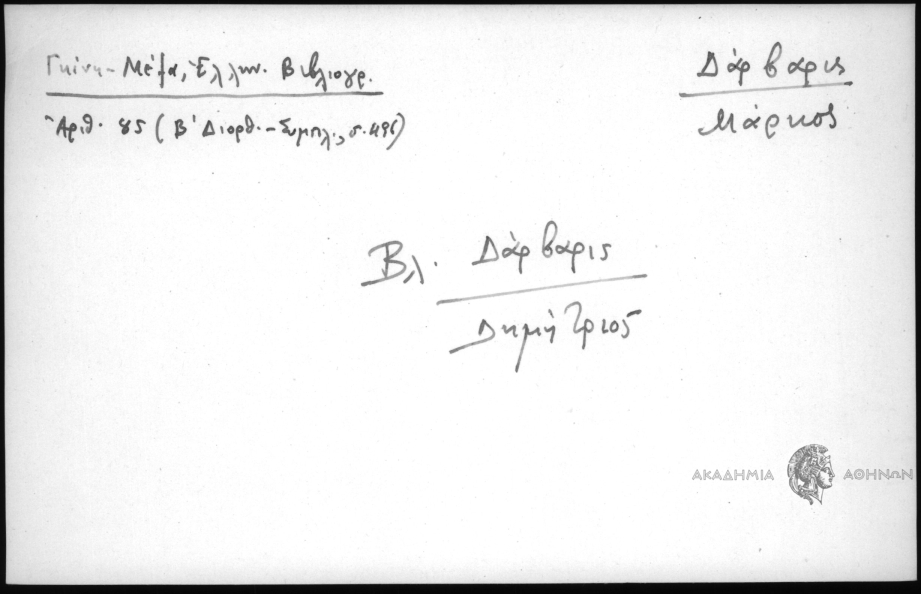 Γκίνη-Μέξα, Ἑλλην. Βιβλιογρ.
Ἀριθ. 85 (Β' Διορθ.-Συμπλ., σ. 496)
Δάρβαρις
Μάρκος
Βλ. Δάρβαρις
Δημήτριος
ΑΚΑΔΗΜΙΑ ΑΘΗΝΩΝ